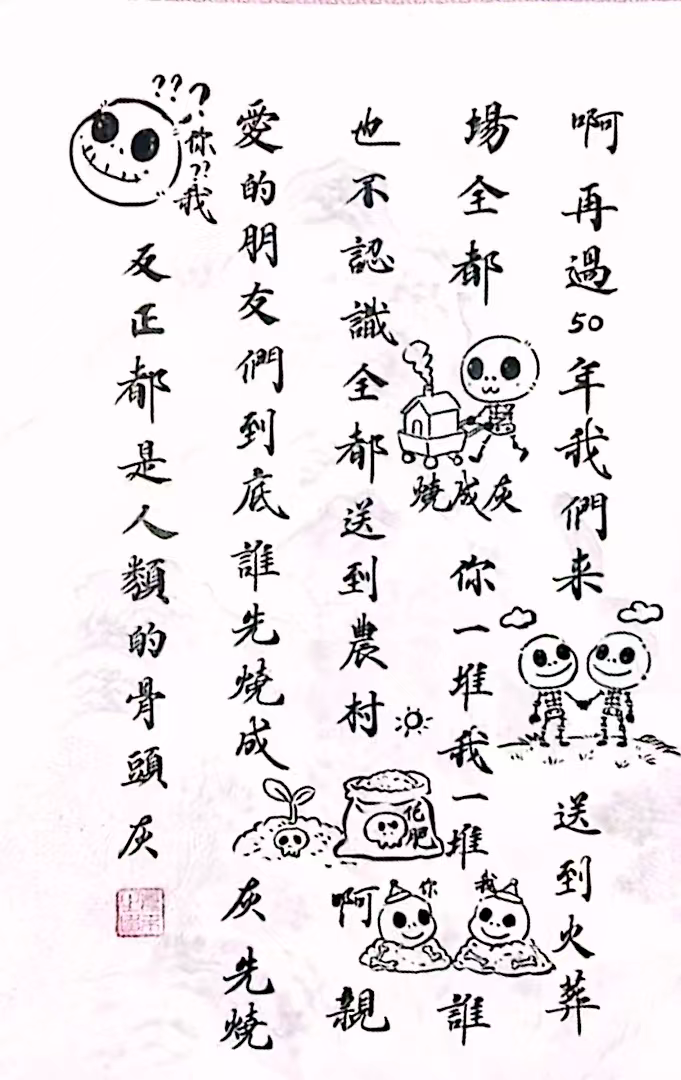 啊再過50年我們来送到火葬
場全都燒成灰你一堆我一堆誰
也不認識全都送到農村啊親
愛的朋友們到底誰先燒成灰先燒
反正都是人類的骨頭灰
??？你??我
化肥
你
我